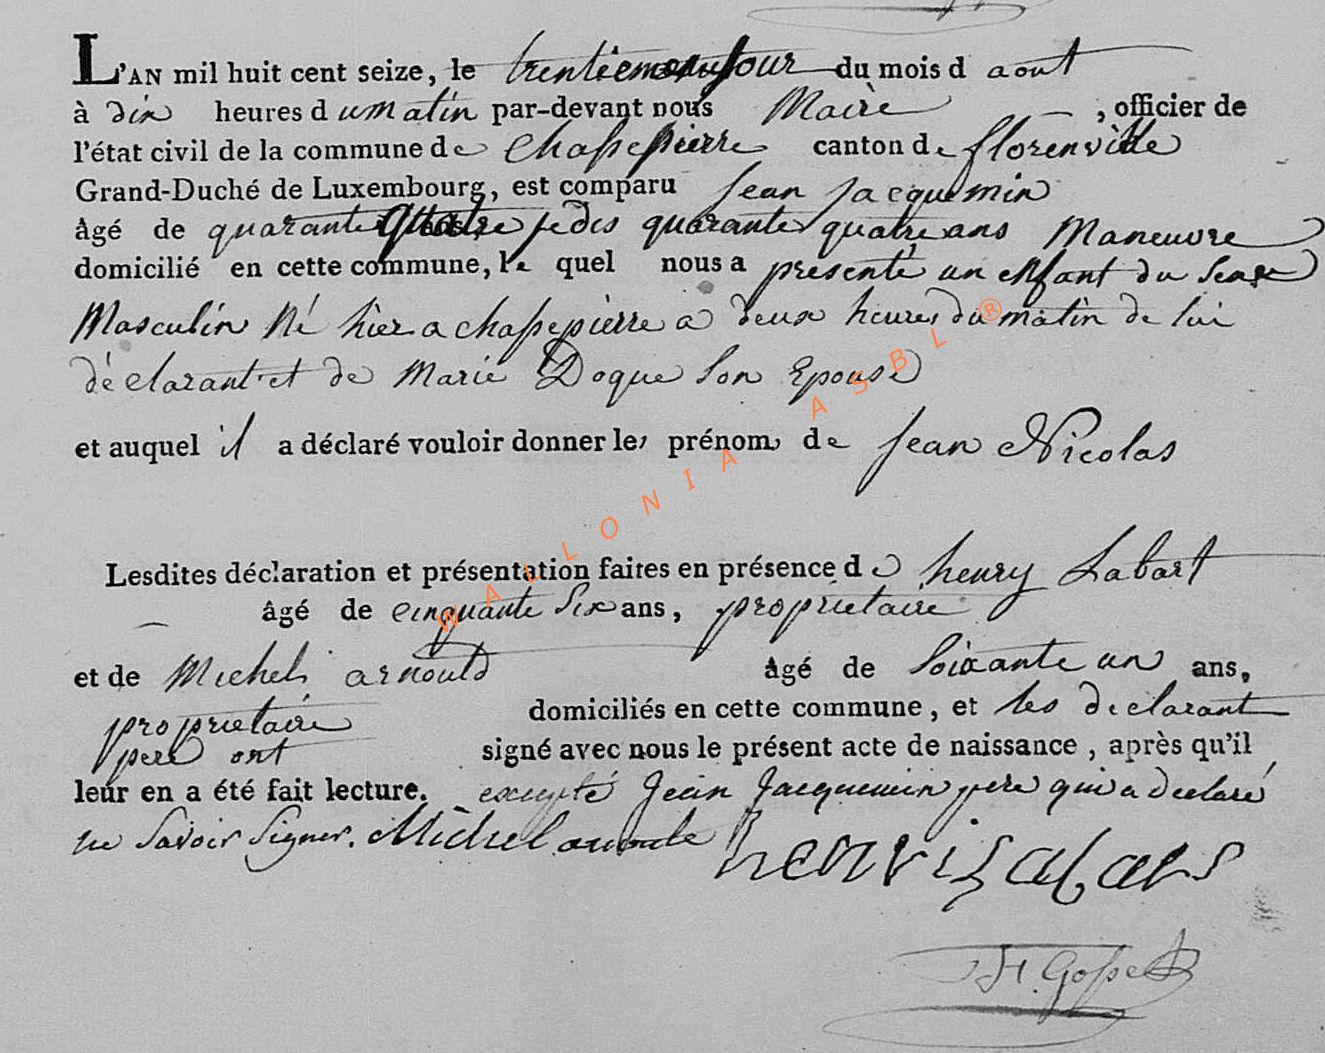 L'AN mil huit cent seize, le trentiemeunjour du mois d aout
à dix heures d umatin par-devant nous Maire , officier de
l'état civil de la commune de Chassepierre canton de florenville
Grand-Duché de Luxembourg, est comparu Jean Jacquemin
âgé de quarante quatre je dis quarante quatre ans Maneuvre
domicilié en cette commune, le quel nous a presenté un enfant du sexe
Masculin Né hier a chassepierre a deux heures du matin de lui
déclarant et de Marie Doque son Epouse
et auquel il a déclaré vouloir donner les prénoms de Jean Nicolas
Lesdites déclaration et présentation faites en présence de henry Labart
âgé de cinquante six ans, proprietaire
et de Michel arnould âgé de soixante un ans,
proprietaire domiciliés en cette commune, et les declarant
pere ont signé avec nous le présent acte de naissance, après qu'il
leur en a été fait lecture. excepté Jean Jacquemin pere qui a declaré
ne savoir signer. Michel
H. Gosset
WALLONIA ASBL ®